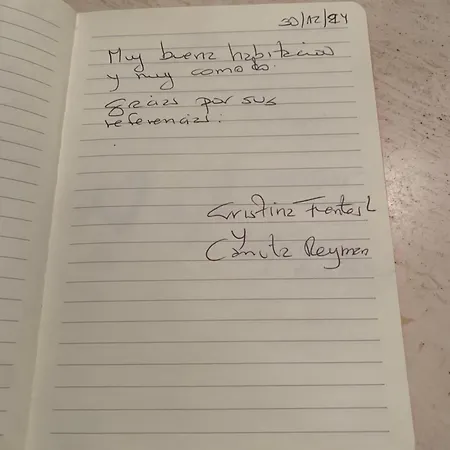 30/12/24
Muy buena habitacion
y muy comodo.
gracias por sus
referencias.
Cristina
y
Reyman